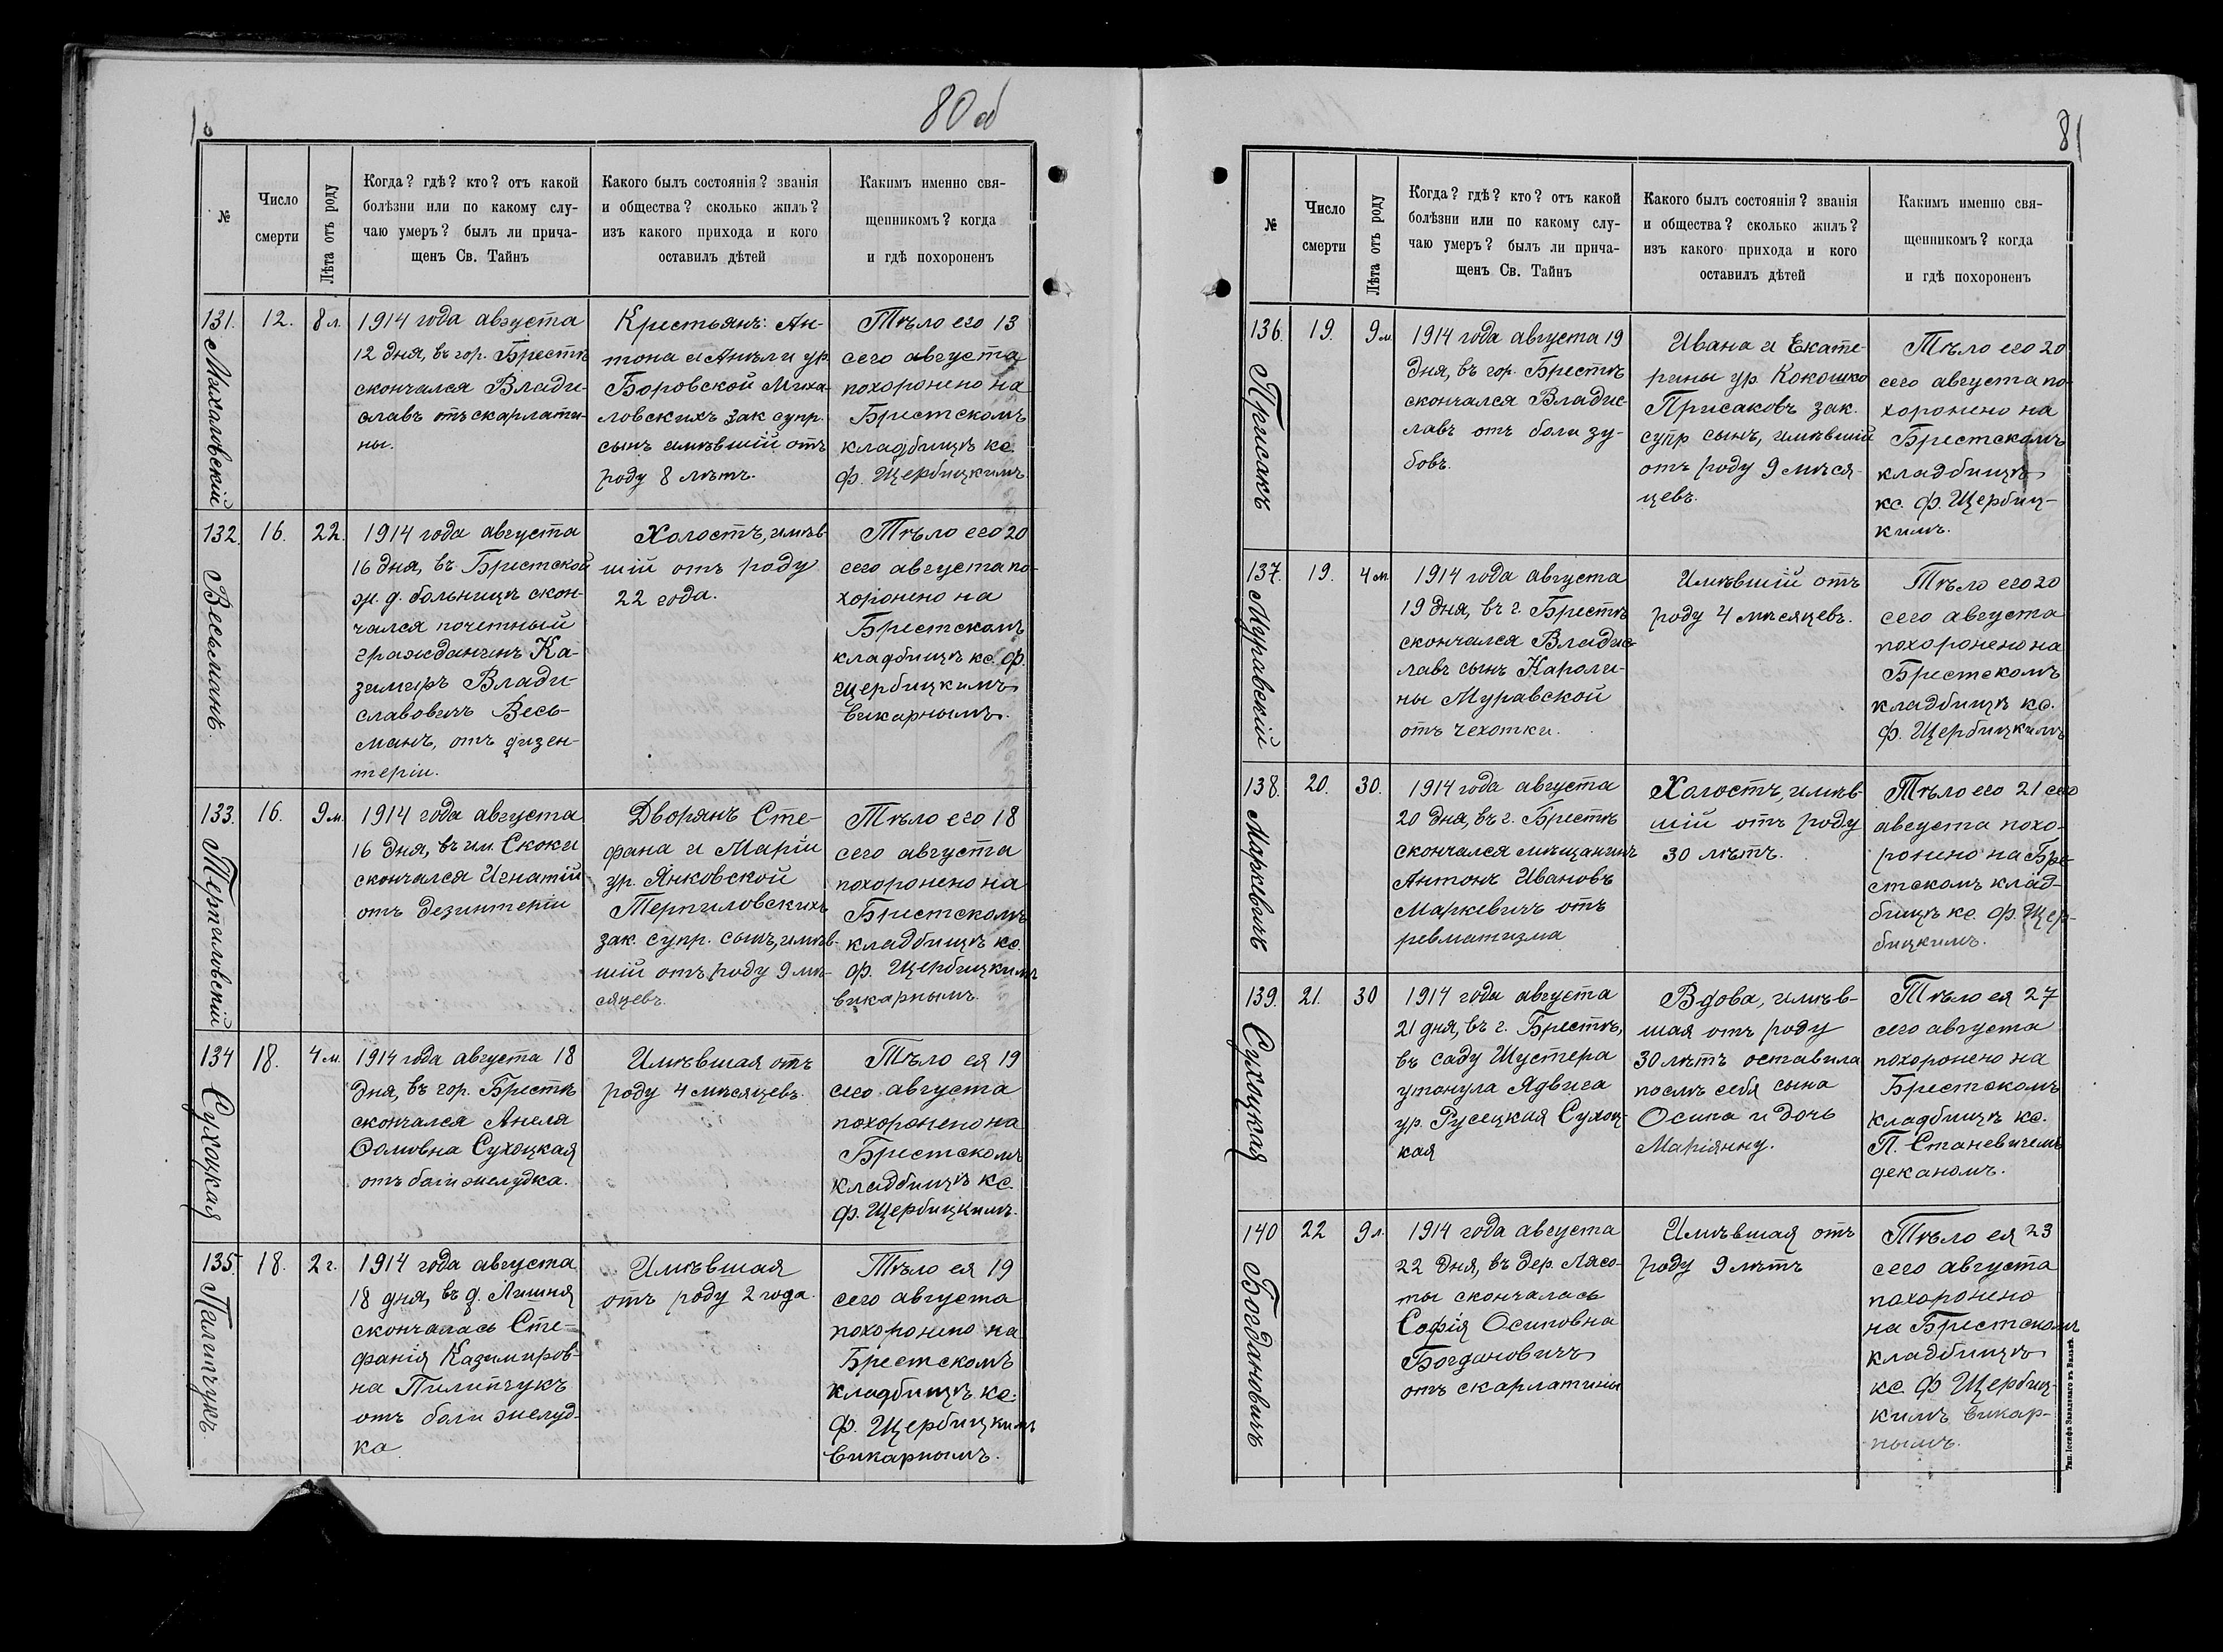 80 об
№
Число
смерти
Лѣта отъ роду
Когда? гдѣ? кто? отъ какой
болѣзни или по какому слу-
чаю умеръ? былъ ли прича-
щенъ Св. Тайнъ
Какого былъ состоянія? званія
и общества? сколько жилъ?
изъ какого прихода и кого
оставилъ дѣтей
Какимъ именно свя-
щенникомъ? когда
и гдѣ похороненъ
131. Михаловскій
12.
8 л.
1914 года августа
12 дня, въ гор. Брестѣ
скончался Влади-
славъ отъ скарлати-
ны.
Крестьянъ: Ан-
тона и Анели ур.
Боровской Миха-
ловскихъ зак супр.
сынъ имѣвшій отъ
роду 8 лѣтъ.
Тѣло его 13
сего августа
похоронено на
Брестскомъ
кладбищѣ кс.
ф. Щербицкимъ.
132. Весьманъ
16.
22.
1914 года августа
16 дня, въ Брестской
ж. д. больницѣ скон-
чался почетный
гражданинъ Ка-
зимиръ Влади-
славовичъ Весь-
манъ, отъ дизен-
теріи.
Холостъ, имѣв-
шій отъ роду
22 года.
Тѣло его 20
сего августа по-
хоронено на
Брестскомъ
кладбищѣ кс. ф.
Щербицкимъ
викарнымъ.
133. Терпиловскій
16.
9 м.
1914 года августа
16 дня, въ им. Скоки
скончался Игнатій
отъ дезинтеріи
Дворянъ Сте-
фана и Маріи
ур. Янковской
Терпиловскихъ
зак. супр. сынъ, имѣв-
шій отъ роду 9 мѣ-
сяцевъ.
Тѣло его 18
сего августа
похоронено на
Брестскомъ
кладбищѣ кс.
ф. Щербицкимъ
викарнымъ.
134 Сухоцкая
18.
4 м.
1914 года августа 18
дня, въ гор. Брестѣ
скончался Анеля
Сухоцкая
отъ боли желудка.
Имѣвшая отъ
роду 4 мѣсяцевъ.
Тѣло ея 19
сего августа
похоронено на
Брестскомъ
кладбищѣ кс.
ф. Щербицкимъ.
135. Палипчукъ
18.
2 г.
1914 года августа
18 дня, въ д.
скончалась Сте-
фанія Казимиров-
на Пилипчукъ
отъ боли желуд-
ка
Имѣвшая
отъ роду 2 года.
Тѣло ея 19
сего августа
похоронено на
Брестскомъ
кладбищѣ кс.
ф. Щербицкимъ
викарнымъ.
81
№
Число
смерти
Лѣта отъ роду
Когда? гдѣ? кто? отъ какой
болѣзни или по какому слу-
чаю умеръ? былъ ли прича-
щенъ Св. Тайнъ
Какого былъ состоянія? званія
и общества? сколько жилъ?
изъ какого прихода и кого
оставилъ дѣтей
Какимъ именно свя-
щенникомъ? когда
и гдѣ похороненъ
136. Присакъ
19.
9 м
1914 года августа 19
дня, въ гор. Брестѣ
скончался Владис-
лавъ отъ боли зу-
бовъ.
Ивана и Екате-
рины ур. Кокошко
Присаковъ зак.
супр сынъ, имѣвшій
отъ роду 9 мѣся-
цевъ.
Тѣло его 20
сего августа по-
хоронено на
Брестскомъ
кладбищѣ
кс. ф. Щербиц-
кимъ.
137. Муравскій
19.
4 м
1914 года августа
19 дня, въ г. Брестѣ
скончался Владис-
лавъ сынъ Кароли-
ны Муравской
отъ чехотки.
Имѣвшій отъ
роду 4 мѣсяцевъ.
Тѣло его 20
сего августа
похоронено на
Брестскомъ
кладбищѣ кс.
ф. Щербицкимъ
138. Маркевичъ
20.
30.
1914 года августа
20 дня, въ г. Брестѣ
скончался мѣщанинъ
Антонъ Ивановъ
Маркевичъ отъ
ревматизма
Холостъ, имѣв-
шій отъ роду
30 лѣтъ.
Тѣло его 21 сего
августа похо-
ронено на Бре-
стскомъ клад-
бищѣ кс. ф. Щер-
бицкимъ.
139. Сухоцкая
21.
30
1914 года августа
21 дня, въ г. Брестѣ,
въ саду Шустера
утонула Ядвига
ур. Русецкая Сухоц-
кая
Вдова, имѣв-
шая отъ роду
30 лѣтъ оставила
послѣ себя сына
Осипа и дочь
Маріянну.
Тѣло ея 27
сего августа
похоронено на
Брестскомъ
кладбищѣ кс.
П. Станевичемъ
деканомъ.
140 Богдановичъ
22
9 л.
1914 года августа
22 дня, въ дер. Лясо-
ты скончалась
Софія Осиповна
Богдановичъ
отъ скарлатины
Имѣвшая отъ
роду 9 лѣтъ
Тѣло ея 23
сего августа
похоронено
на Брестскомъ
кладбищѣ
кс. ф Щербиц-
кимъ викар-
нымъ.
Тип. Іосифа Завадзкаго въ Вильнѣ.